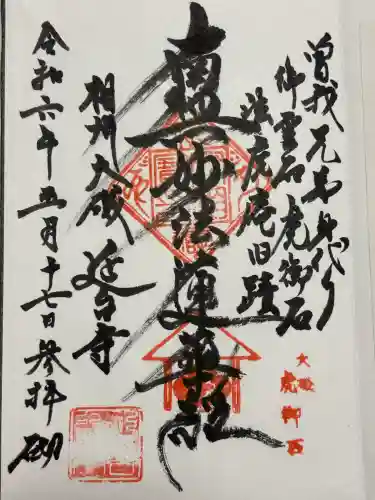 曽我兄弟身代り
御霊石虎御石
法虎庵旧蹟
南無妙法蓮華経
相州大磯
延台寺
令和六年五月十七日参拝
大磯
虎御石